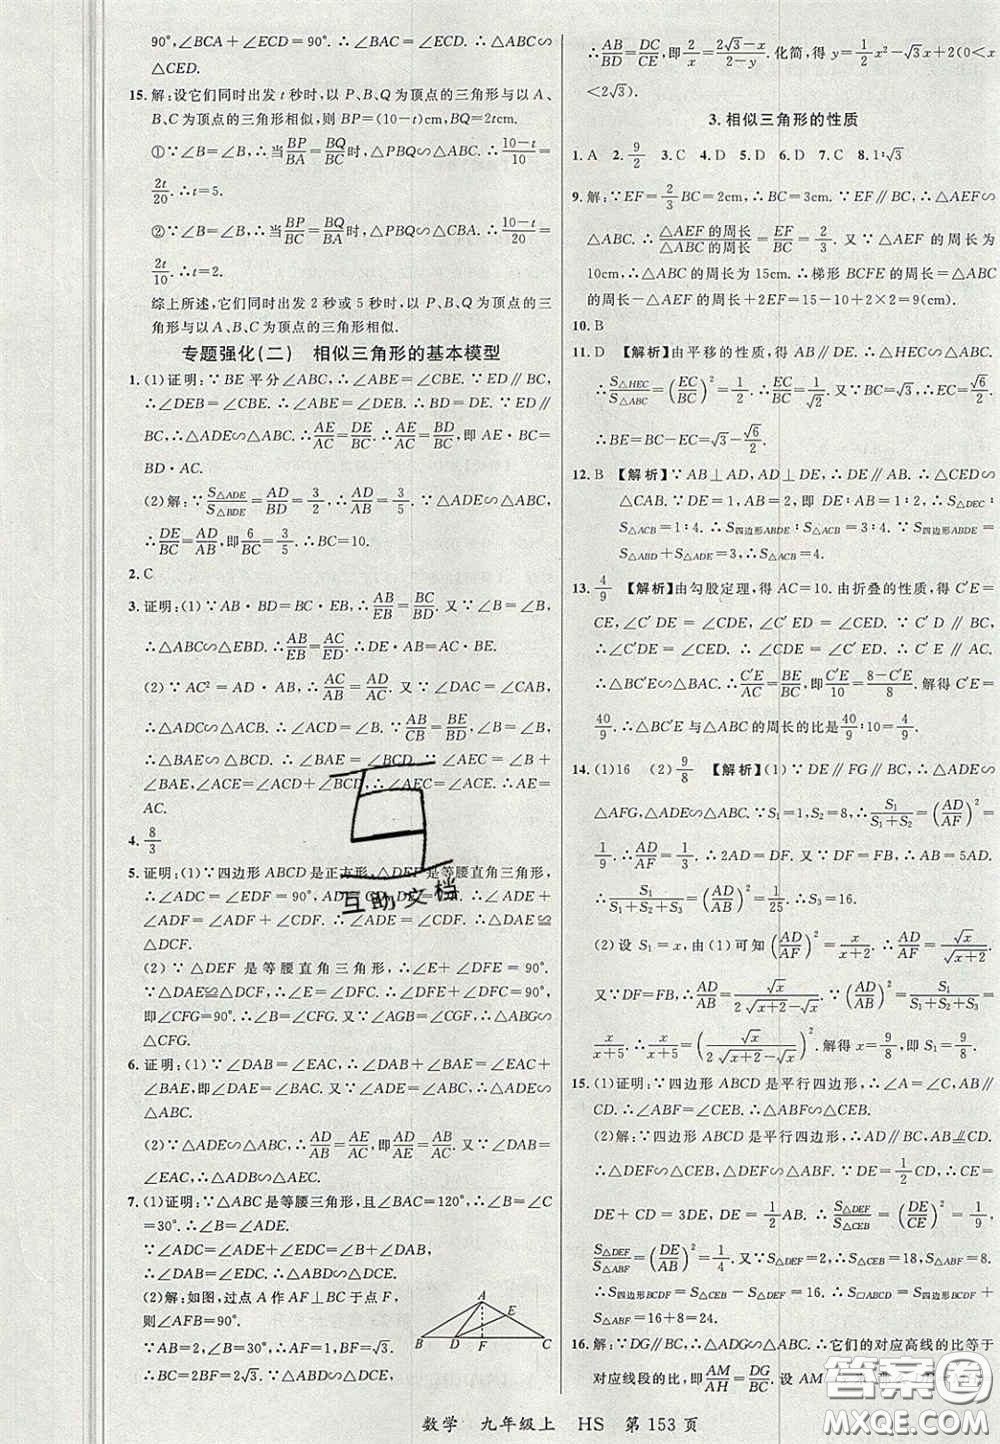 90°,∠BCA+∠ECD=90°.∴∠BAC=∠ECD.∴△ABC∽
△CED.
15.解:设它们同时出发t秒时,以P、B、Q为顶点的三角形与以A、
B、C为顶点的三角形相似,则BP=(10-t)cm,BQ=2tcm.
①∵∠B=∠B,∴当BP/BA=BQ/BC时,△PBQ∽△ABC.∴(10-t)/10=
2t/20.∴t=5.
②∵∠B=∠B,∴当BP/BC=BQ/BA时,△PBQ∽△CBA.∴(10-t)/20=
2t/10.∴t=2.
综上所述,它们同时出发2秒或5秒时,以P、B、Q为顶点的三
角形与以A、B、C为顶点的三角形相似.
专题强化(二) 相似三角形的基本模型
1.(1)证明:∵BE平分∠ABC,∴∠ABE=∠CBE.∵ED∥BC,
∴∠DEB=∠CBE.∴∠ABE=∠DEB.∴BD=DE.∵ED∥
BC,∴△ADE∽△ABC.∴AE/AC=DE/BC.∴AE/AC=BD/BC,即AE·BC=
BD·AC.
(2)解:∵S△ADE/S△BDE=AD/BD=3/2,∴AD/AB=3/5.∵△ADE∽△ABC,
∴DE/BC=AD/AB,即6/BC=3/5.∴BC=10.
2.C
3.证明:(1)∵AB·BD=BC·EB,∴AB/EB=BC/BD.又∵∠B=∠B,
∴△ABC∽△EBD.∴AB/EB=AC/ED.∴DE·AB=AC·BE.
(2)∵AC²=AD·AB,∴AC/AB=AD/AC.又∵∠DAC=∠CAB,
∴△ADC∽△ACB.∴∠ACD=∠B.∵AB/CB=BE/BD,∠B=∠B,
∴△ABE∽△CBD.∴∠BAE=∠BCD.∵∠AEC=∠B+
∠BAE,∠ACE=∠ACD+∠BCD,∴∠AEC=∠ACE.∴AE=
AC.
4. 8/3
5.证明:(1)∵四边形ABCD是正方形,△DEF是等腰直角三角形,
∴∠ADC=∠EDF=90°,AD=CD,DE=DF.∴∠ADE+
∠ADF=∠ADF+∠CDF.∴∠ADE=∠CDF.∴△DAE≌
△DCF.
(2)∵△DEF是等腰直角三角形,∴∠E+∠DFE=90°.
∵△DAE≌△DCF,∴∠E=∠CFD.∴∠CFD+∠DFE=90°,
即∠CFG=90°.∴∠B=∠CFG.又∵∠AGB=∠CGF,∴△ABG∽
△CFG.
6.证明:(1)∵∠DAB=∠EAC,∴∠DAB+∠BAE=∠EAC+
∠BAE,即∠DAE=∠BAC.又∵∠ADE=∠ABC,∴△ADE∽
△ABC.
(2)∵△ADE∽△ABC,∴AD/AB=AE/AC,即AD/AE=AB/AC.又∵∠DAB=
∠EAC,∴△ADB∽△AEC.
7.(1)证明:∵△ABC是等腰三角形,且∠BAC=120°,∴∠B=∠C
=30°.∴∠B=∠ADE.
∵∠ADC=∠ADE+∠EDC=∠B+∠BAD,∴∠EDC=
∠BAD.∴△ABD∽△DCE.
(2)解:如图,过点A作AF⊥BC于点F,
则∠AFB=90°.
∵AB=2,∠ABF=30°,∴AF=1/2AB=1.
∴BC=2BF=2√3.
A
E
B D F C
∴AB/BD=DC/CE,即2/x=(2√3-x)/(2-y).化简,得y=1/2x²-√3x+2(0<
x<2√3).
3.相似三角形的性质
1.A 2. 9/2 3.C 4.D 5.D 6.D 7.C 8.1:√3
9.解:∵EF=2/3BC=2cm,∴BC=3cm.∵EF∥BC,∴△AEF∽
△ABC.∴△AEF的周长/△ABC的周长=EF/BC=2/3.又∵△AEF的周长为
10cm,∴△ABC的周长为15cm.∴梯形BCFE的周长=△ABC的
周长-△AEF的周长+2EF=15-10+2×2=9(cm).
10.B
11.D 【解析】由平移的性质,得AB∥DE,∴△HEC∽△ABC.
∴S△HEC/S△ABC=(EC/BC)²=1/2.∴EC/BC=1/√2.又∵BC=√3,∴EC=√6/2.
∴BE=BC-EC=√3-√6/2.
12.B 【解析】∵AB⊥AD,AD⊥DE,∴AB∥DE.∴△CED∽
△CAB.∵DE=1,AB=2,即DE:AB=1:2,∴S△DEC:
S△ACB=1:4.∴S四边形ABDE:S△ACB=3:4.∵S四边形ABDE=
S△ABD+S△ADE=3,∴S△ACB=4.
13. 4/9 【解析】由勾股定理,得AC=10.由折叠的性质,得C'E=
CE,∠C'DE=∠CDE,∠C'ED=∠CED.∵C'D∥BC,
∴∠C'DE=∠CED.∴∠CDE=∠C'ED.∴C'E∥
AC.∴△BC'E∽△BAC.∴C'E/AC=BE/BC,即C'E/10=(8-C'E)/8.解得C'E=
40/9.∴△BC'E与△ABC的周长的比是40/9:10=4/9.
14.(1)16 (2)9/8 【解析】(1)∵DE∥FG∥BC,∴△ADE∽
△AFG,△ADE∽△ABC.∵S₁=1,S₂=8,∴S₁/(S₁+S₂)=(AD/AF)²=
1/9.∴AD/AF=1/3.∴2AD=DF.又∵DF=FB,∴AB=5AD.
∴S₁/(S₁+S₂+S₃)=(AD/AB)²=1/25.∴S₃=16.
(2)设S₁=x,由(1)可知(AD/AF)²=x/(x+2).∴AD/AF=√x/√(x+2).
又∵DF=FB,∴AD/AB=√x/(2√(x+2)-√x).∵(AD/AB)²=S₁/(S₁+S₂+S₃)=
x/(x+5),∴x/(x+5)=(√x/(2√(x+2)-√x))².解得x=9/8,即S₁=9/8.
15.(1)证明:∵四边形ABCD是平行四边形,∴∠A=∠C,AB∥
CD.∴∠ABF=∠CEB.∴△ABF∽△CEB.
(2)解:∵四边形ABCD是平行四边形,∴AD∥BC,AB∥=CD.
∴△DEF∽△CEB,△DEF∽△ABF.∵DE=1/2CD,∴CE=
DE+CD=3DE,DE=1/2AB.∴S△DEF/S△CEB=(DE/CE)²=1/9,
S△DEF/S△ABF=(DE/AB)²=1/4.又∵S△DEF=2,∴S△CEB=18,S△ABF=8.
∴S四边形BCDF=S△CEB-S△DEF=16.∴S□ABCD=S四边形BCDF+
S△ABF=16+8=24.
16.解:∵DG∥BC,∴△ADG∽△ABC.∴它们的对应高线的比等于
对应线段的比,即AM/AH=DG/BC.设AM
互助文档
答案圈
MXQE.COM
数学 九年级上 HS 第153页